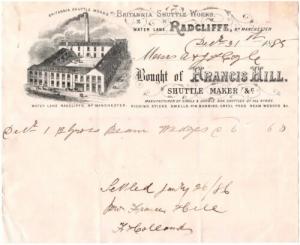 BRITANNIA SHUTTLE WORKS
BRITANNIA SHUTTLE WORKS,
WATER LANE, RADCLIFFE, Nr MANCHESTER
Decr 31st 1885
Messrs
Bought of FRANCIS HILL,
SHUTTLE MAKER &c
WATER LANE RADCLIFFE, Nr MANCHESTER.
MANUFACTURER OF SINGLE & DOUBLE BOX SHUTTLES OF ALL KINDS,
PICKING STICKS, SWELLS, PIN BARRELS, BEAM WEDGES &c.
Decr 1 Gross Beam Wedges 6 6 0
Settled Jany 26/86
for Francis Hill
H Holland